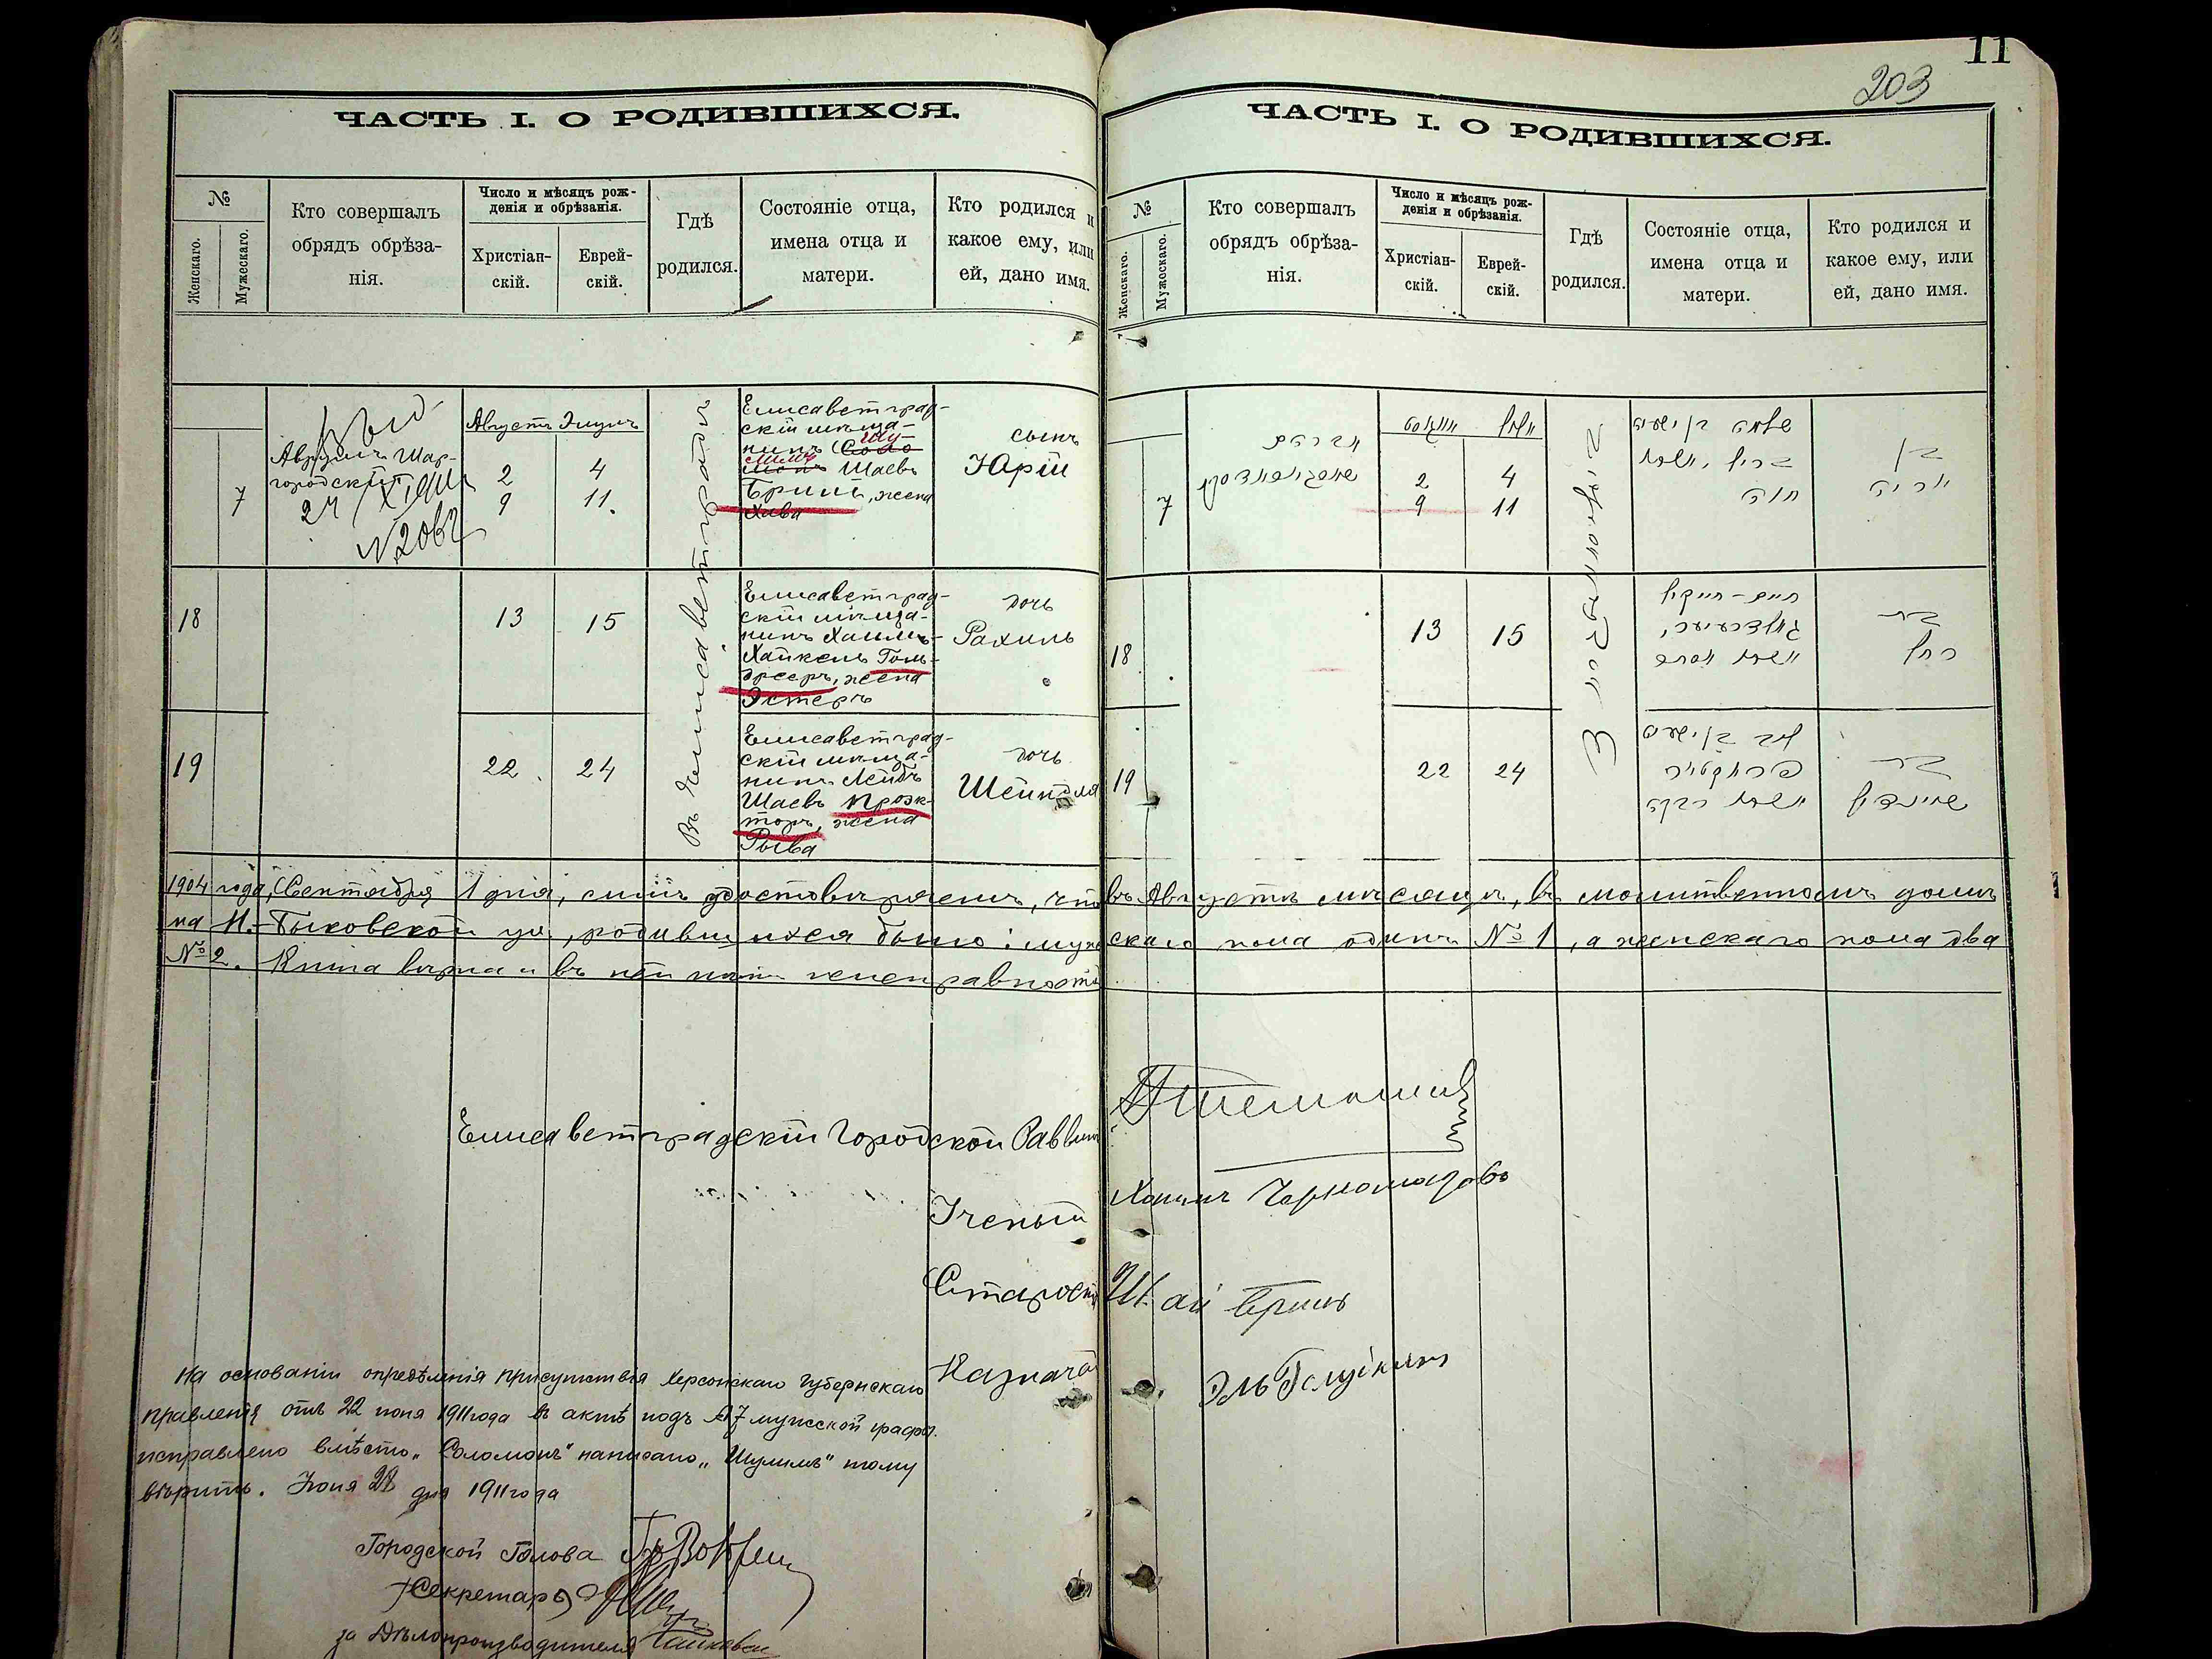 11
203
ЧАСТЬ I. О РОДИВШИХСЯ.
№
Женскаго.
Мужескаго.
Кто совершалъ
обрядъ обрѣза-
нія.
Число и мѣсяцъ рож-
денія и обрѣзанія.
Христіан-
скій.
Еврей-
скій.
Гдѣ
родился.
Состояніе отца,
имена отца и
матери.
Кто родился и
какое ему, или
ей, дано имя.
7
Аврумъ Шар-
городскій
Августъ Элулъ
2 4
9 11.
Въ Елисаветградѣ
Елисаветград-
скій мѣща-
нинъ Соло
Шу-
лимъ
монъ Шаевъ
Бринъ, жена
Хива
сынъ
Юрій
18
13 15
Елисаветград-
скій мѣща-
нинъ Хаимъ-
Хайкель Голь-
дреръ, жена
Эстеръ
дочь
Рахиль
19
22 24
Елисаветград-
скій мѣща-
нинъ Лейбъ
Шаевъ Прок-
торъ, жена
Рыва
дочь
Шейндля
ЧАСТЬ I. О РОДИВШИХСЯ.
№
Женскаго.
Мужескаго.
Кто совершалъ
обрядъ обрѣза-
нія.
Число и мѣсяцъ рож-
денія и обрѣзанія.
Христіан-
скій.
Еврей-
скій.
Гдѣ
родился.
Состояніе отца,
имена отца и
матери.
Кто родился и
какое ему, или
ей, дано имя.
7
אברהם
אויגוסט אלול
2 4
9 11
שלמה בן ישעיה
ברין, אשתו
חוה
בן
18
13 15
חיים-חייקיל
אשתו אסתר
בת
רחל
19
22 24
ליב בן ישעיה
פראקטאר
אשתו רבקה
בת
שיינדיל
1904 года, Сентября 1 дня, симъ удостовѣряемъ, что въ Августѣ мѣсяцѣ, въ молитвенномъ домѣ
на И.-Быковской ул, родившихся было: мужескаго пола одинъ № 1, а женскаго пола два
№ 2. Книга вѣрна и въ ней нѣтъ неисправности
Елисаветградскій Городской Раввинъ
Ученый Хаимъ Черномазовъ
Староста Шай Бринъ
Казначей
На основаніи опредѣленія присутствія Херсонскаго Губернскаго
правленія отъ 22 іюня 1911 года въ актѣ подъ №7 мужской графы
исправлено вмѣсто „Соломонъ" написано „Шулимъ" тому
вѣрить. Іюня 28 дня 1911 года
Городской Голова
Секретарь
за Дѣлопроизводителя